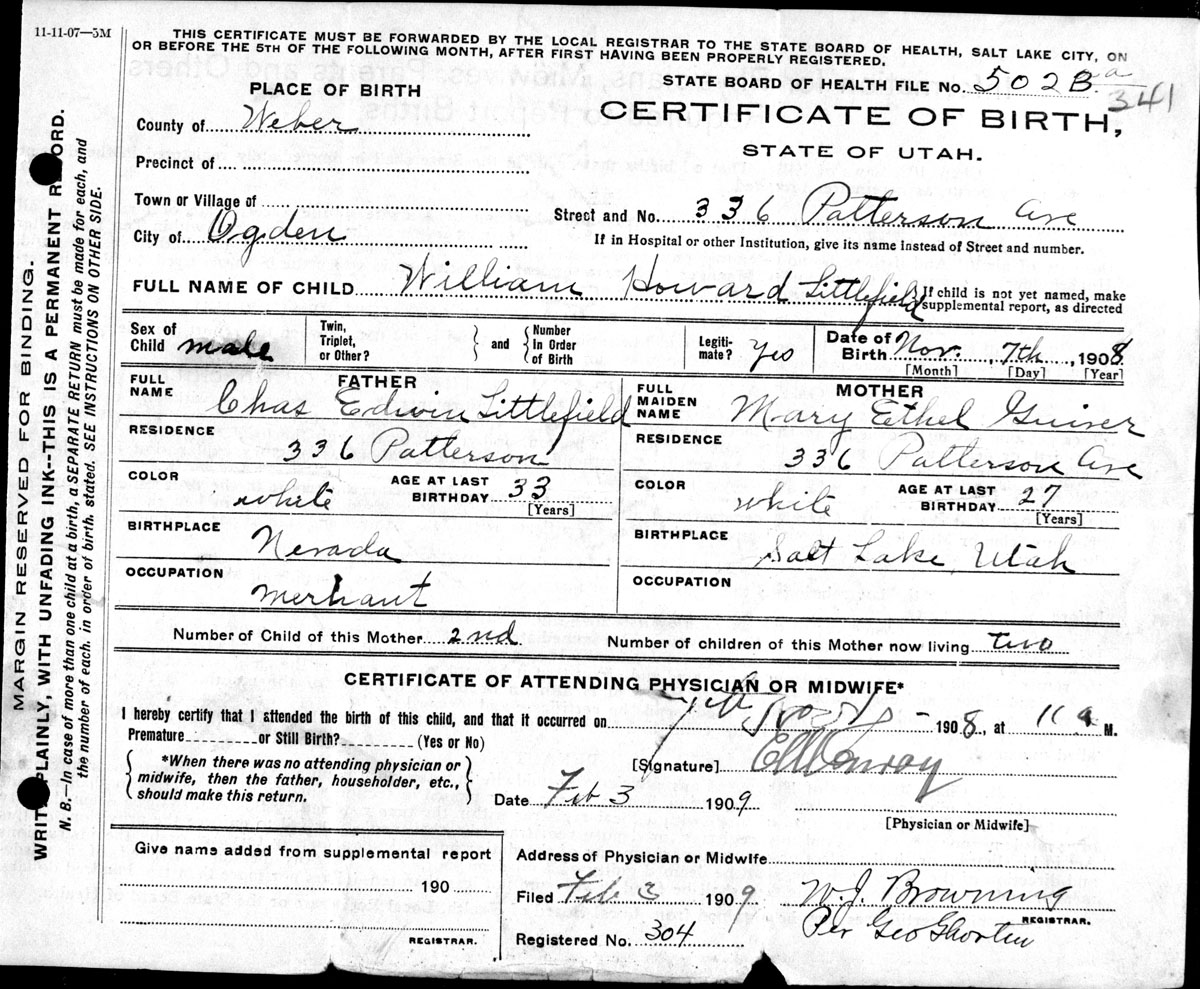 11-11-07—5M
THIS CERTIFICATE MUST BE FORWARDED BY THE LOCAL REGISTRAR TO THE STATE BOARD OF HEALTH, SALT LAKE CITY, ON
OR BEFORE THE 5TH OF THE FOLLOWING MONTH, AFTER FIRST HAVING BEEN PROPERLY REGISTERED.
STATE BOARD OF HEALTH FILE No. 502B a
341
PLACE OF BIRTH
CERTIFICATE OF BIRTH,
STATE OF UTAH.
County of Weber
Precinct of
Town or Village of
Street and No. 336 Patterson Ave
City of Ogden
If in Hospital or other Institution, give its name instead of Street and number.
FULL NAME OF CHILD William Howard Littlefield
If child is not yet named, make
supplemental report, as directed
Sex of Child male
Twin, Triplet, or Other?
and
Number In Order of Birth
Legiti-mate? Yes
Date of Birth Nov. 7th, 1908
[Month] [Day] [Year]
FATHER
FULL NAME Chas Edwin Littlefield
RESIDENCE 336 Patterson
COLOR white
AGE AT LAST BIRTHDAY 33
[Years]
BIRTHPLACE Nevada
OCCUPATION merhant
MOTHER
FULL MAIDEN NAME Mary Ethel
RESIDENCE 336 Patterson Ave
COLOR white
AGE AT LAST BIRTHDAY 27
[Years]
BIRTHPLACE Salt Lake, Utah
OCCUPATION
Number of Child of this Mother 2nd
Number of children of this Mother now living two
CERTIFICATE OF ATTENDING PHYSICIAN OR MIDWIFE*
I hereby certify that I attended the birth of this child, and that it occurred on 1908, at 11 a M.
Premature or Still Birth? (Yes or No)
*When there was no attending physician or
midwife, then the father, householder, etc.,
should make this return.
[Signature] Conroy
Date Feb 3 1909
[Physician or Midwife]
Give name added from supplemental report
190
REGISTRAR.
Address of Physician or Midwife
Filed Feb 3 1909
W. J. Browning
REGISTRAR.
Registered No. 304
Per Geo Shorten
MARGIN RESERVED FOR BINDING.
WRITE PLAINLY, WITH UNFADING INK--THIS IS A PERMANENT RECORD.
N. B.—In case of more than one child at a birth, a SEPARATE RETURN must be made for each, and
the number of each, in order of birth, stated. SEE INSTRUCTIONS ON OTHER SIDE.